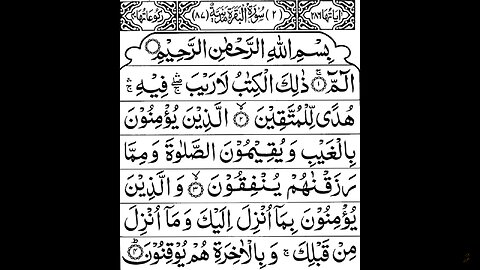 اٰیاتها ٢٨٦ (٢) سُوْرَةُ الْبَقَرَةِ مَدَنِيَّةٌ (٨٧) رکوعاتها ٤٠
بِسْمِ اللهِ الرَّحْمٰنِ الرَّحِيْمِ
الٓمّٓ ۚ﴿١﴾ ذٰلِكَ الْكِتٰبُ لَا رَيْبَ ۛۖ فِيْهِ ۛۚ
هُدًى لِّلْمُتَّقِيْنَ ﴿٢﴾ الَّذِيْنَ يُؤْمِنُوْنَ
بِالْغَيْبِ وَ يُقِيْمُوْنَ الصَّلٰوةَ وَ مِمَّا
رَزَقْنٰهُمْ يُنْفِقُوْنَ ﴿٣﴾ وَ الَّذِيْنَ
يُؤْمِنُوْنَ بِمَآ اُنْزِلَ اِلَيْكَ وَ مَآ اُنْزِلَ
مِنْ قَبْلِكَ ۚ وَ بِالْاٰخِرَةِ هُمْ يُوْقِنُوْنَ ﴿٤﴾